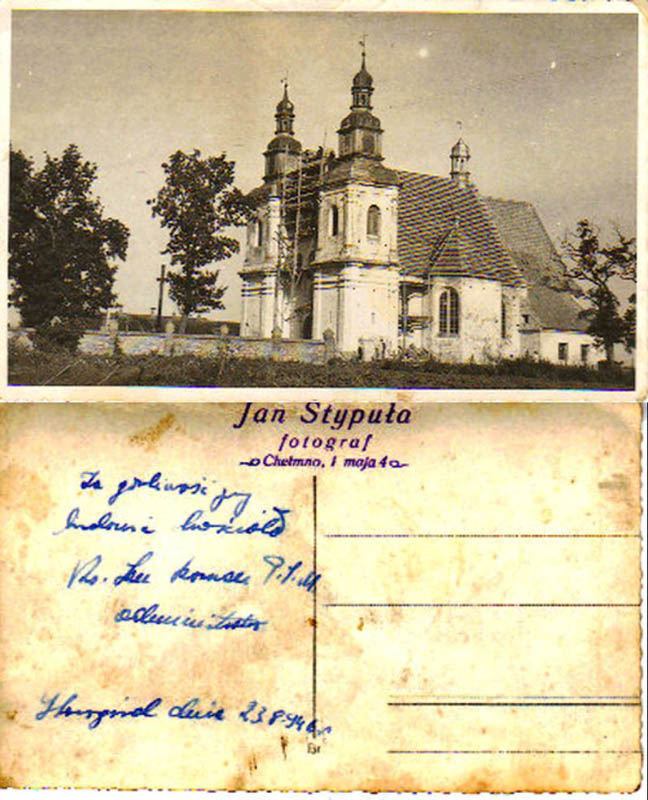 Jan Stypuła
fotograf
Chełmno, 1 maja 4
Za gorliwość przy
budowie kościoła
Ks. Jan
administrator
dnia 23.8.1946 r.